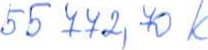 55 772,70 k